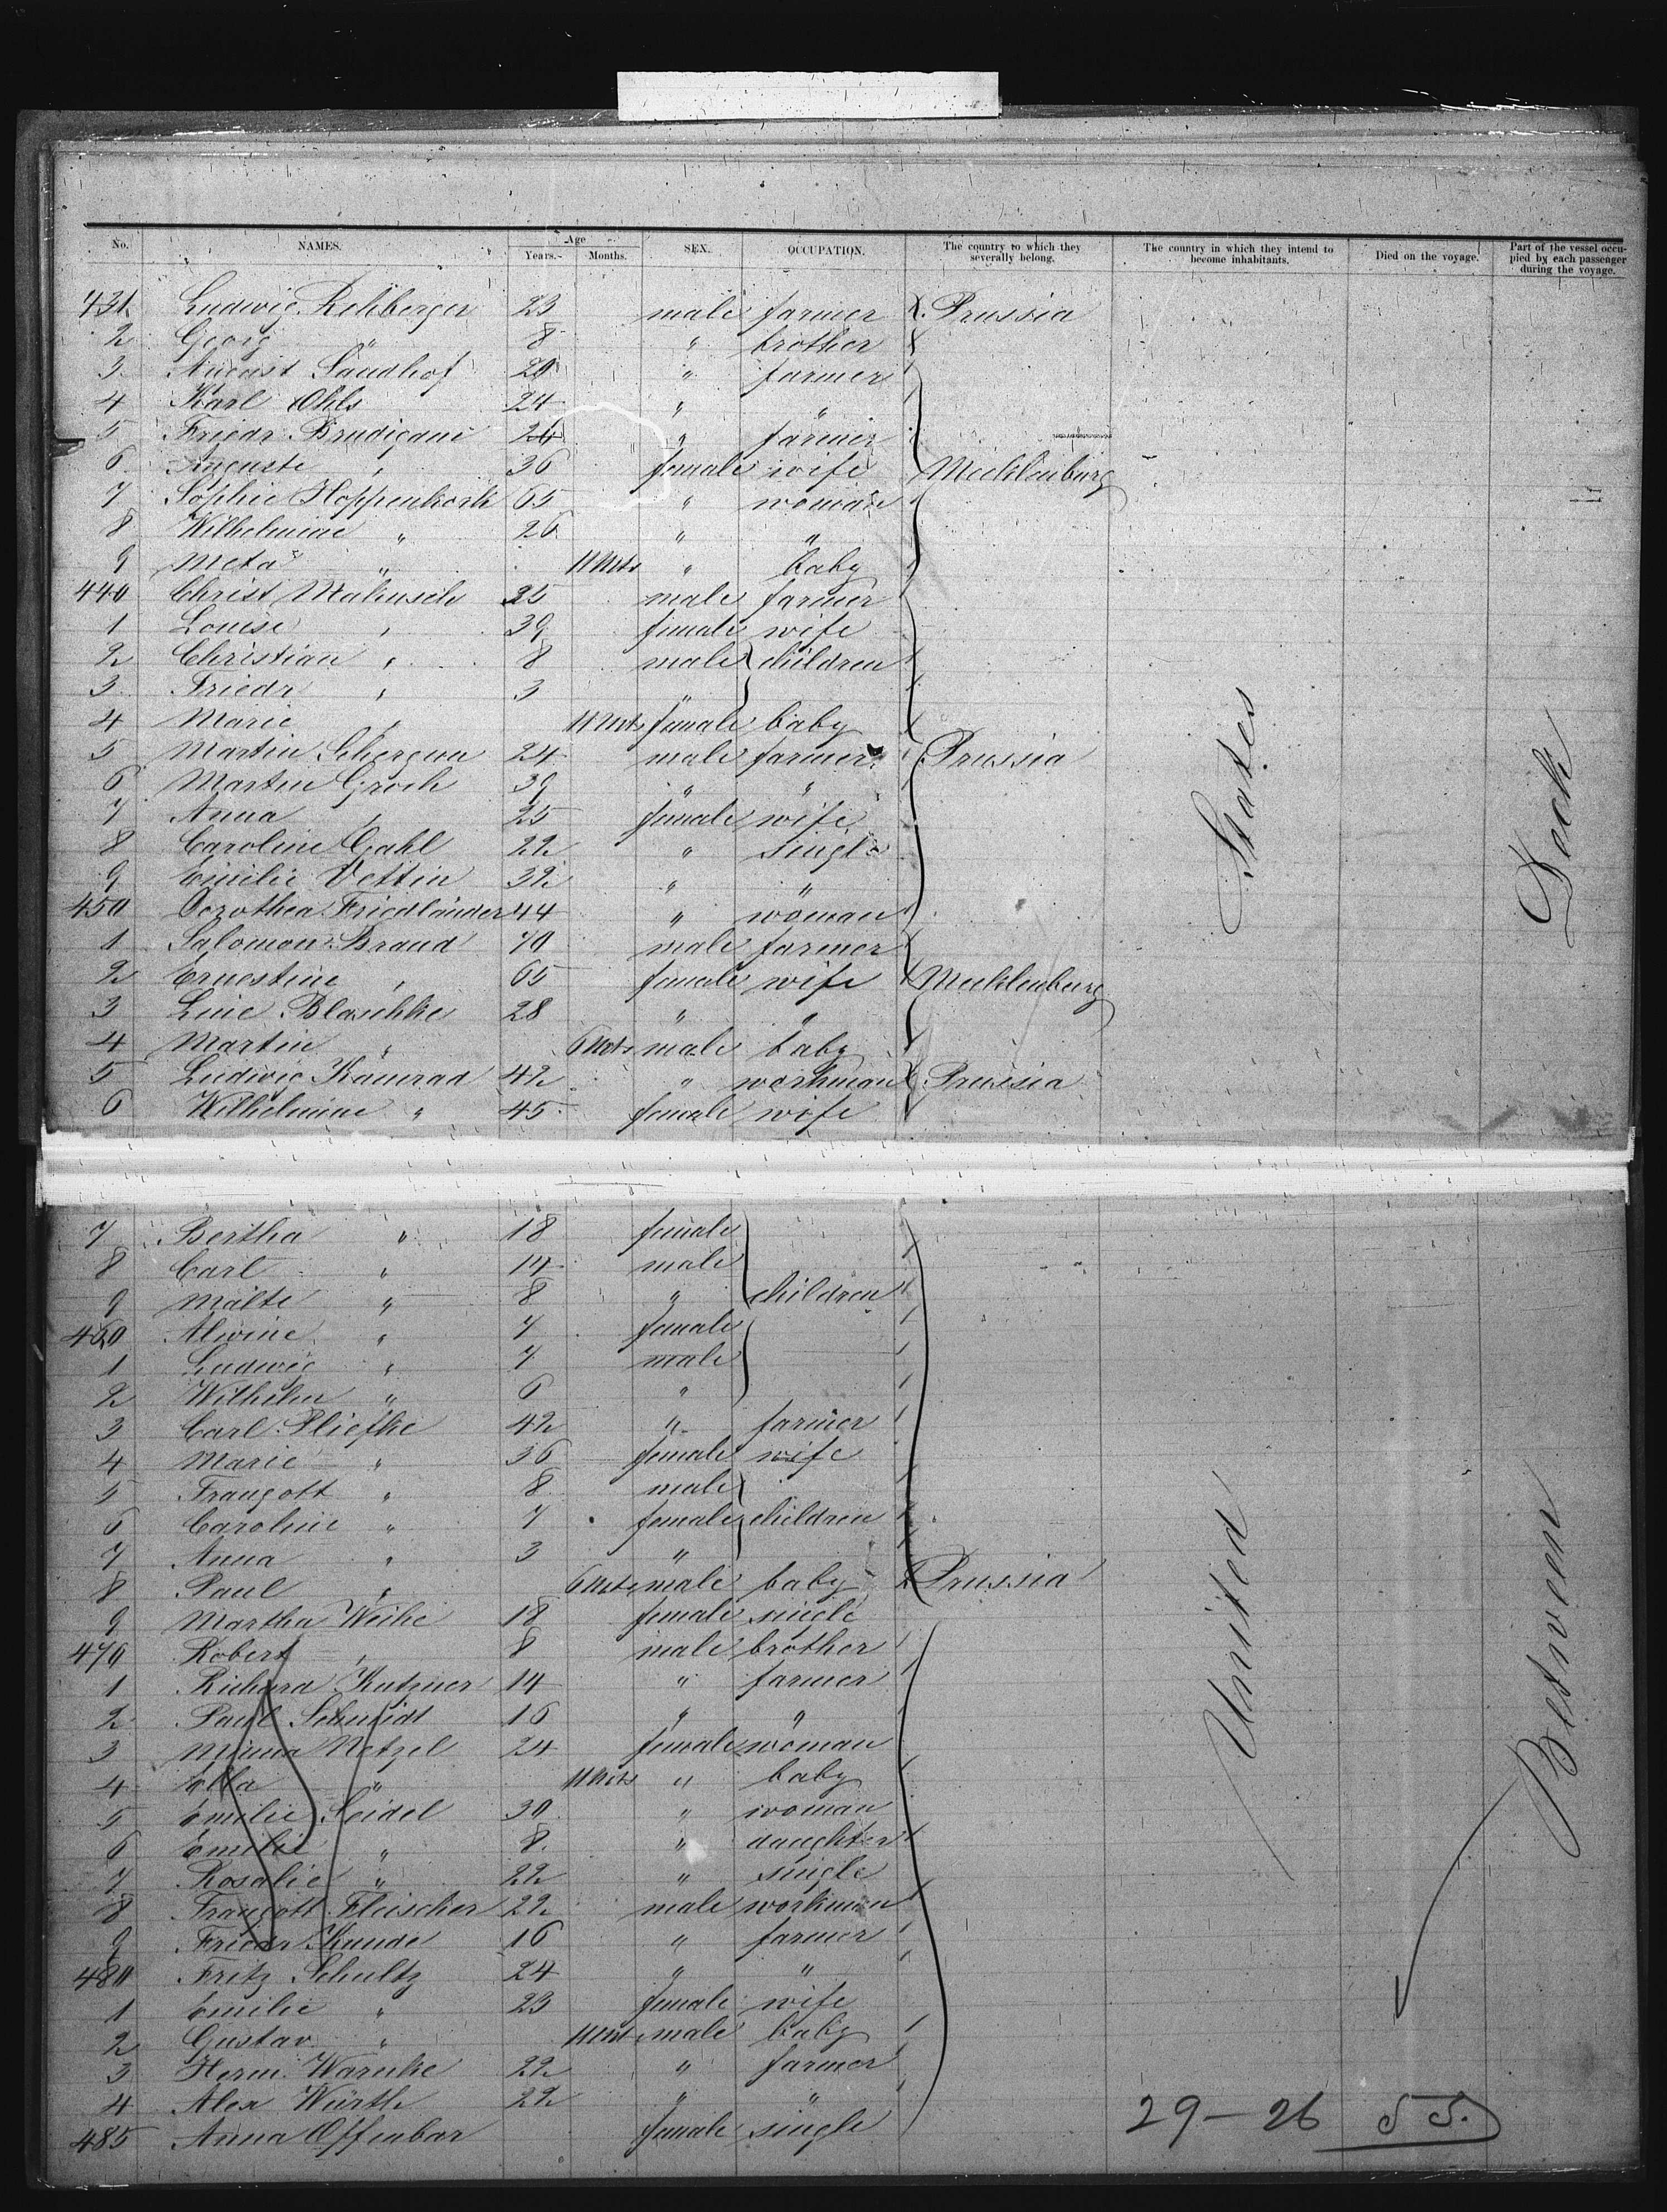 No. NAMES. Age Years. Months. SEX. OCCUPATION. The country to which they severally belong. The country in which they intend to become inhabitants. Died on the voyage. Part of the vessel occupied by each passenger during the voyage.
431 Ludwig Rehberger 23 male farmer Prussia
2 Georg " 8 " brother
3 August Sandhof 20 " farmer
4 Karl Ohls 24 " "
5 Friedr Brudigam 26 " farmer
6 Auguste " 36 female wife Mecklenburg
7 Sophie Hoppenkork 65 " woman
8 Wilhelmine " 26 " "
9 Meta " 11 Mts " baby
440 Christ Mahusch 35 male farmer
1 Louise " 39 female wife
2 Christian " 8 male children
3 Friedr " 3 "
4 Marie " 11 Mts female baby
5 Martin 24 male farmer Prussia
6 Martin Groch 39 " "
7 Anna " 25 female wife
8 Caroline Gahl 22 " single
9 Emilie Vettin 32 " "
450 Dorothea Friedländer 44 " woman
1 Salomon Brand 70 male farmer
2 Ernestine " 65 female wife Mecklenburg
3 Line Blaschke 28 " "
4 Martin " 6 Mts male baby
5 Ludwig Kamrad 42 " workman Prussia
6 Wilhelmine " 45 female wife
7 Bertha " 18 female
8 Carl " 14 male
9 Malte " 8 " children
460 Alwine " 7 female
1 Ludwig " 7 male
2 Wilhelm " 6 "
3 Carl Pliefke 42 " farmer
4 Marie " 36 female wife
5 Traugott " 8 male
6 Caroline " 7 female children
7 Anna " 3 "
8 Paul " 6 Mts male baby Prussia
9 Martha Weihe 18 female single
470 Robert " 8 male brother
1 Richard Kutzner 14 " farmer
2 Paul Schmidt 16 " "
3 Minna Netzel 24 female woman
4 Ella " 11 Mts " baby
5 Emilie Seidel 30 " woman
6 Emilie " 8 " daughter
7 Rosalie " 22 " single
8 Traugott Fleischer 22 male workman
9 Friedr Kunde 16 " farmer
480 Fritz Schultz 24 " "
1 Emilie " 23 female wife
2 Gustav " 11 Mt male baby
3 Herm. Warnke 22 " farmer
4 Alex Würth 22 " "
485 Anna Offenbar female single
United States
Between Deck
29 – 26 55.